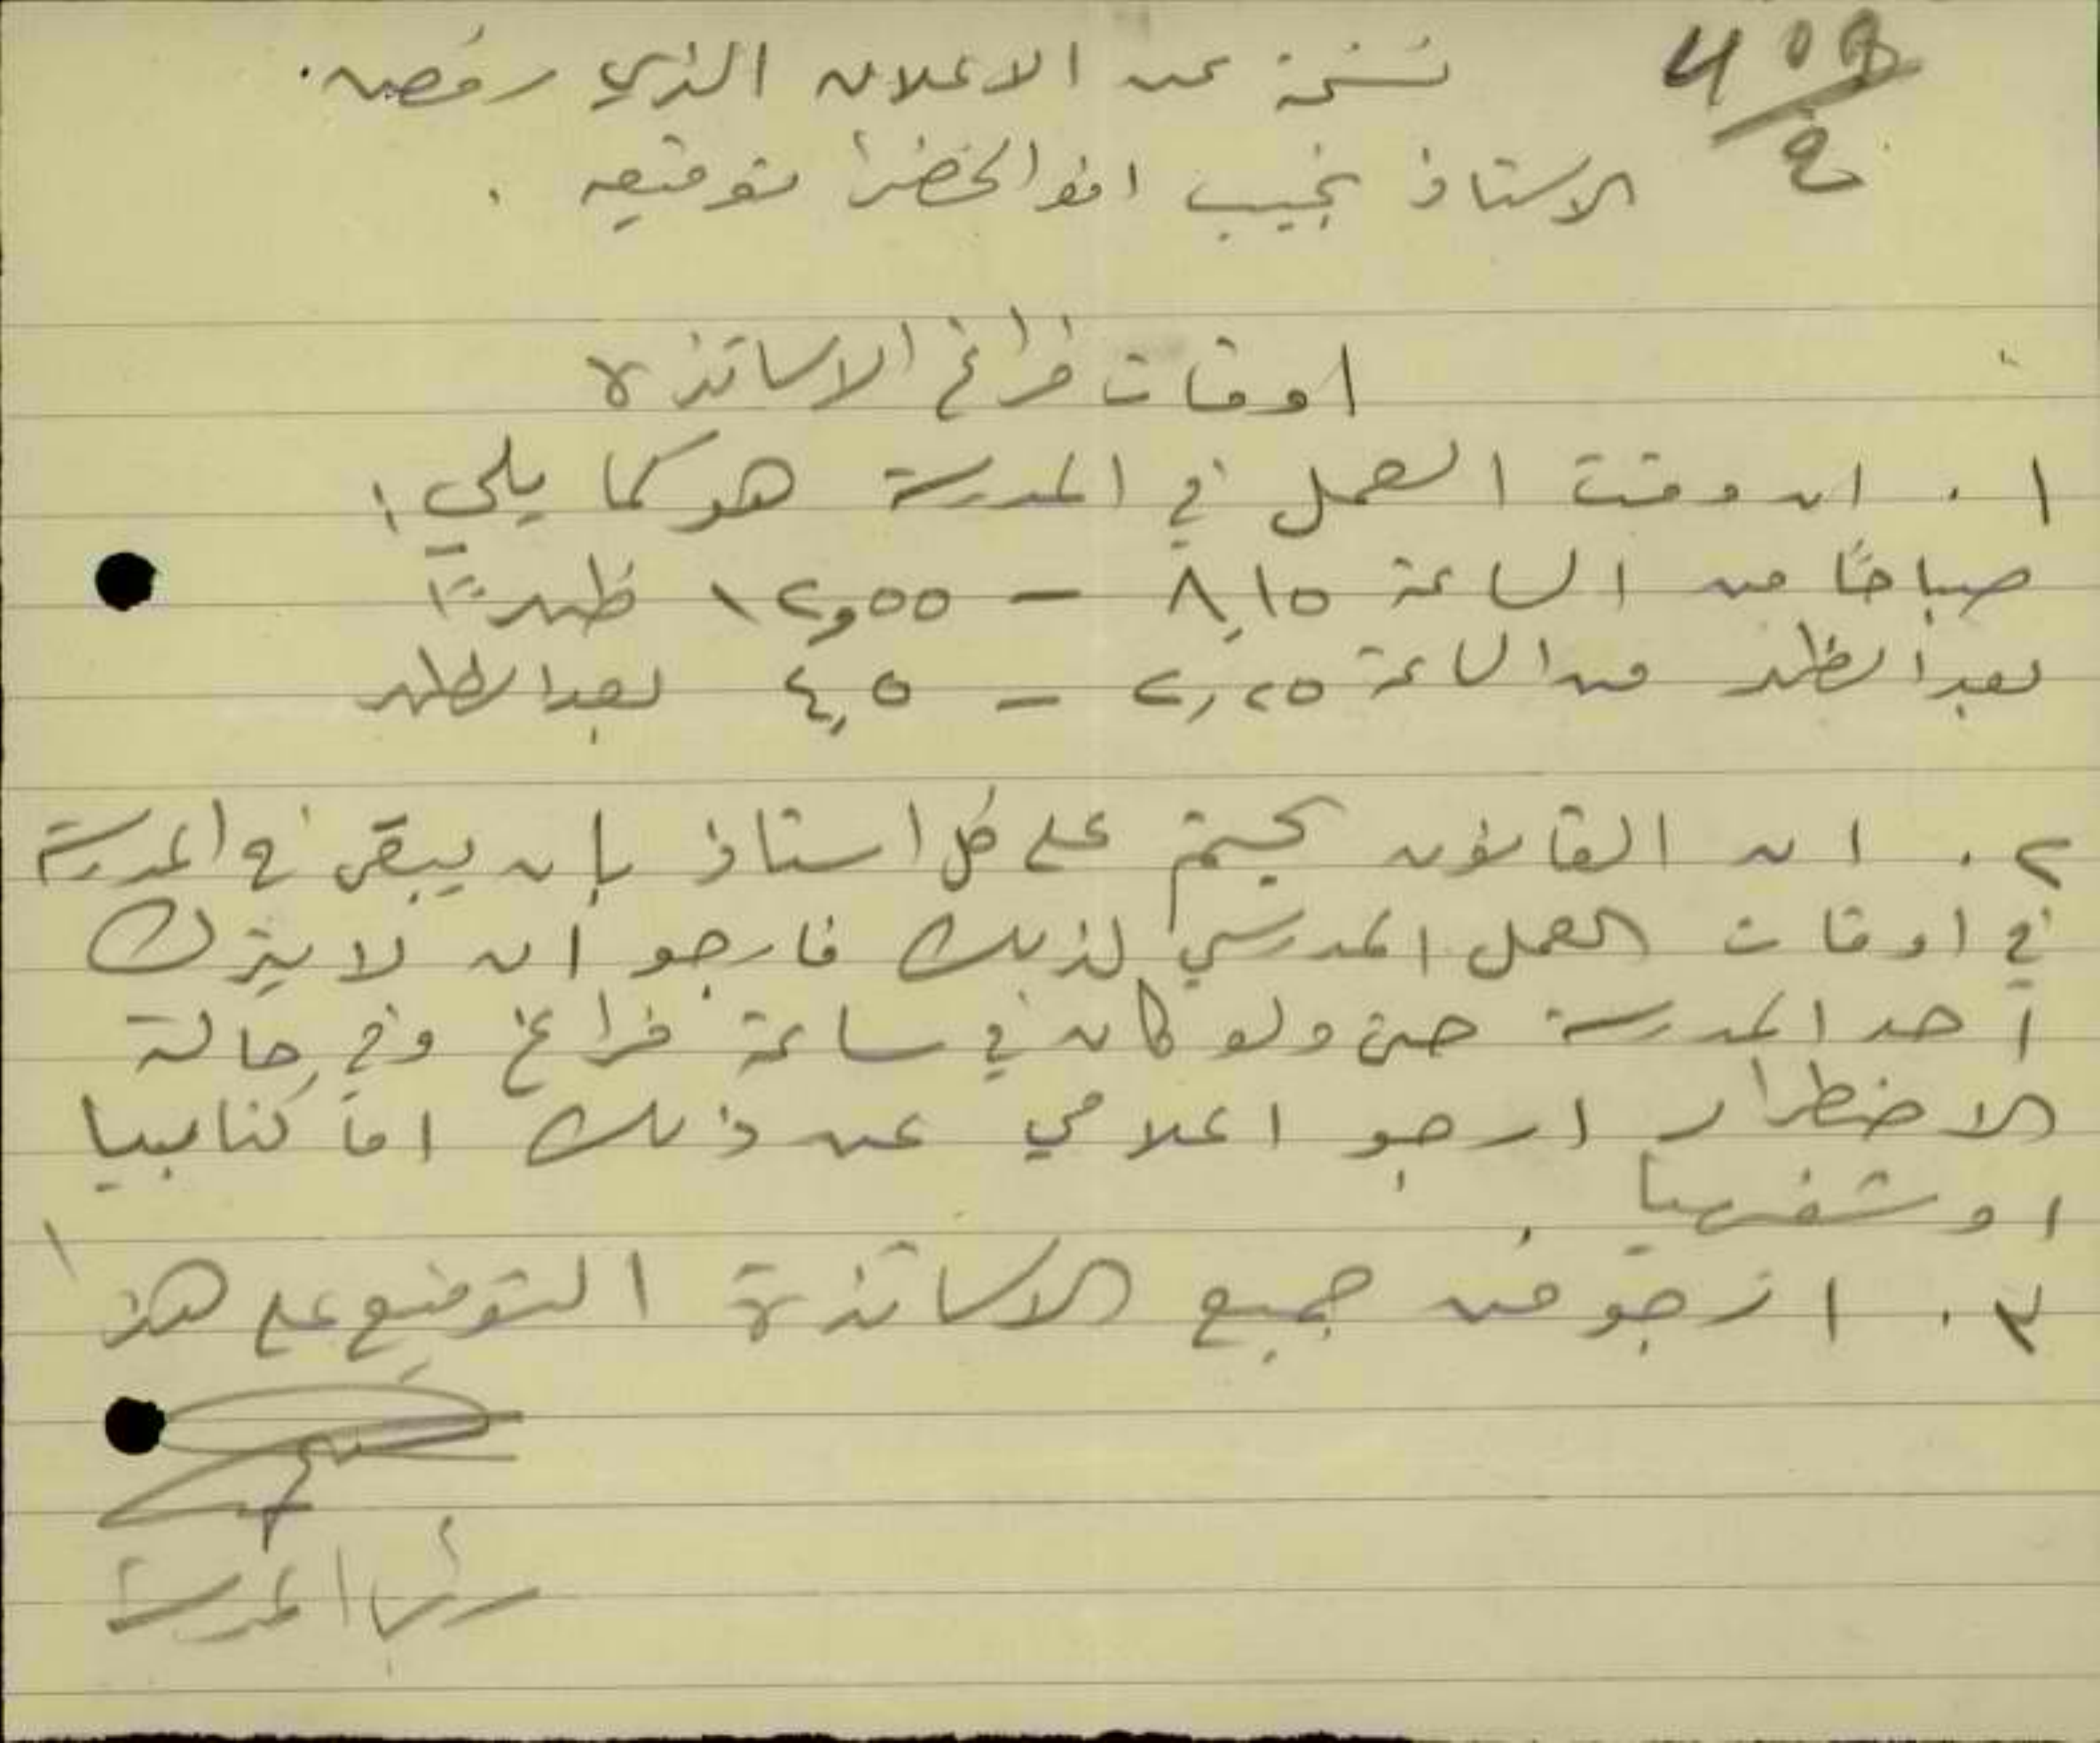 نسخة عن الاعلان الذي رفض
الاستاذ نجيب ابو الخضرا توقيعه .
اوقات فراغ الاساتذة
١. ان وقت العمل في المدرسة هو كما يلي :
صباحًا من الساعة ٨,١٥ – ١٢,٥٥ ظهرًا
بعد الظهر من الساعة ٢,٢٥ – ٤,٥ بعد الظهر
٢. ان القانون يحتم على كل استاذ بان يبقى في المدرسة
في اوقات العمل المدرسي لذلك فارجو ان لا يترك
أحد المدرسة حتى ولو كان في ساعة فراغ وفي حالة
الاضطرار ارجو اعلامي عن ذلك اما كتابيا
او شفهيا .
٣. ارجو من جميع الاساتذة التوقيع على هذا
رئيس المدرسة